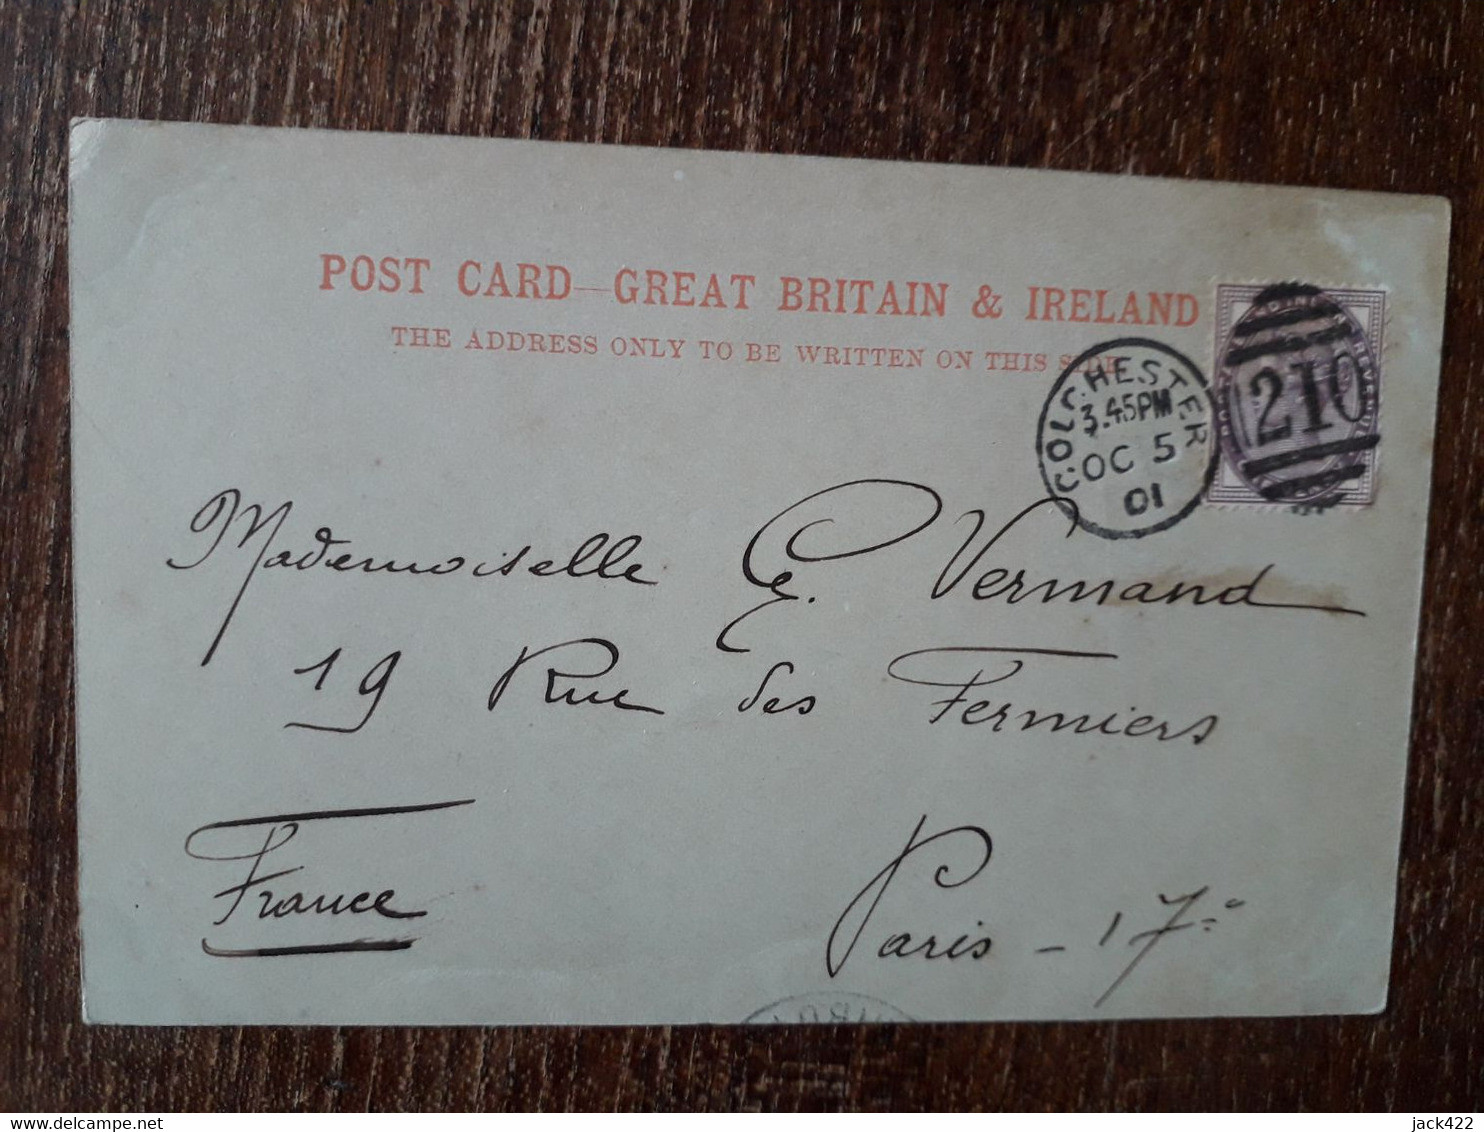 POST CARD—GREAT BRITAIN & IRELAND
THE ADDRESS ONLY TO BE WRITTEN ON THIS SIDE
COLCHESTER
3.45PM
OC 5
01
210
Mademoiselle E. Vermand
19 Rue des Fermiers
France
Paris - 17e
delcampe.net
jack422